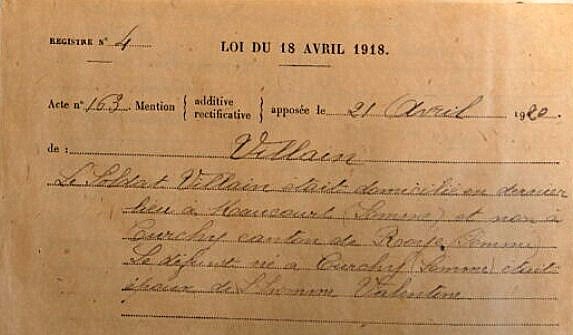 REGISTRE N° 4
LOI DU 18 AVRIL 1918.
Acte n° 163. Mention { additive rectificative } apposée le 21 Avril 1920
de : Villain
Le Soldat Villain était domicilié en dernier
lieu à Haucourt (Somme) et non à
Curchy canton de Roye (Somme)
Le défunt né à Curchy (Somme) était
époux de Lhomme Valentine